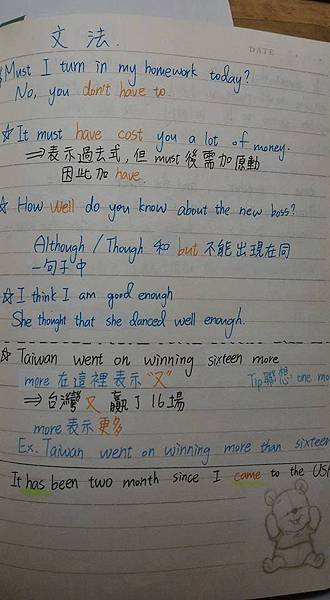 文法.
DATE
Must I turn in my homework today?
No, you don't have to
☆ It must have cost you a lot of money.
⇒表示過去式,但 must 後需加原動
因此加 have
☆ How well do you know about the new boss?
Although / Though 和 but 不能出現在同
一句子中
☆ I think I am good enough
She thought that she danced well enough.
☆ Taiwan went on winning sixteen more
more 在這裡表示"又" Tip聯想 one mo
⇒台灣又贏了16場
more 表示更多
Ex. Taiwan went on winning more than sixteen
It has been two month since I came to the USA